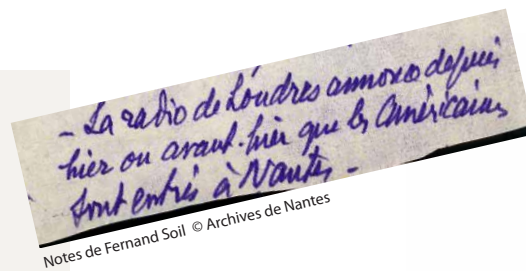 - La radio de Londres annonce depuis
hier ou avant-hier que les Américains
sont entrés à Nantes -
Notes de Fernand Soil © Archives de Nantes